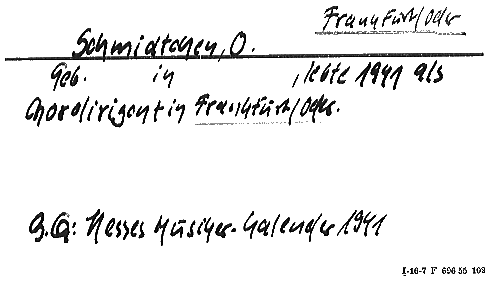 Frankfurt/Oder
Schmidtchen, O.
Geb. in , lebte 1941 als
Chordirigent in Frankfurt/Oder.
Q.: Hesses Musiker-Kalender 1941
I-16-7 F 696 55 103